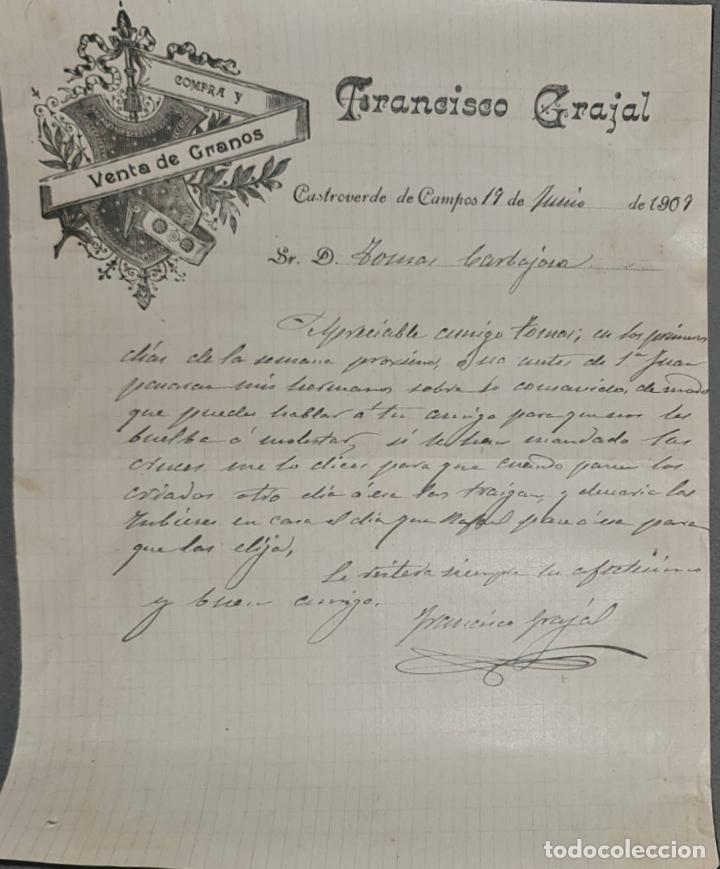 COMPRA Y
Venta de Granos
Francisco Grajal
Castroverde de Campos 19 de Junio de 1909
Sr. D. Tomas Carbajosa
Apreciable amigo Tomas; en los primeros
dias de la semana proxima, o sea antes de Sn Juan
pasaran mis hermanos sobre lo combenido, de modo
que puedes hablar á tu amigo para que no nos
buelba á molestar, si te han mandado las
cruces me lo dices para que cuando pasen los
criados otro dia á esa las traigan, y
tubieses en casa el dia que Rafael pase á esa para
que las elija,
Se reitera siempre tu afectisimo
y buen amigo.
Francisco Grajal
todocoleccion.net